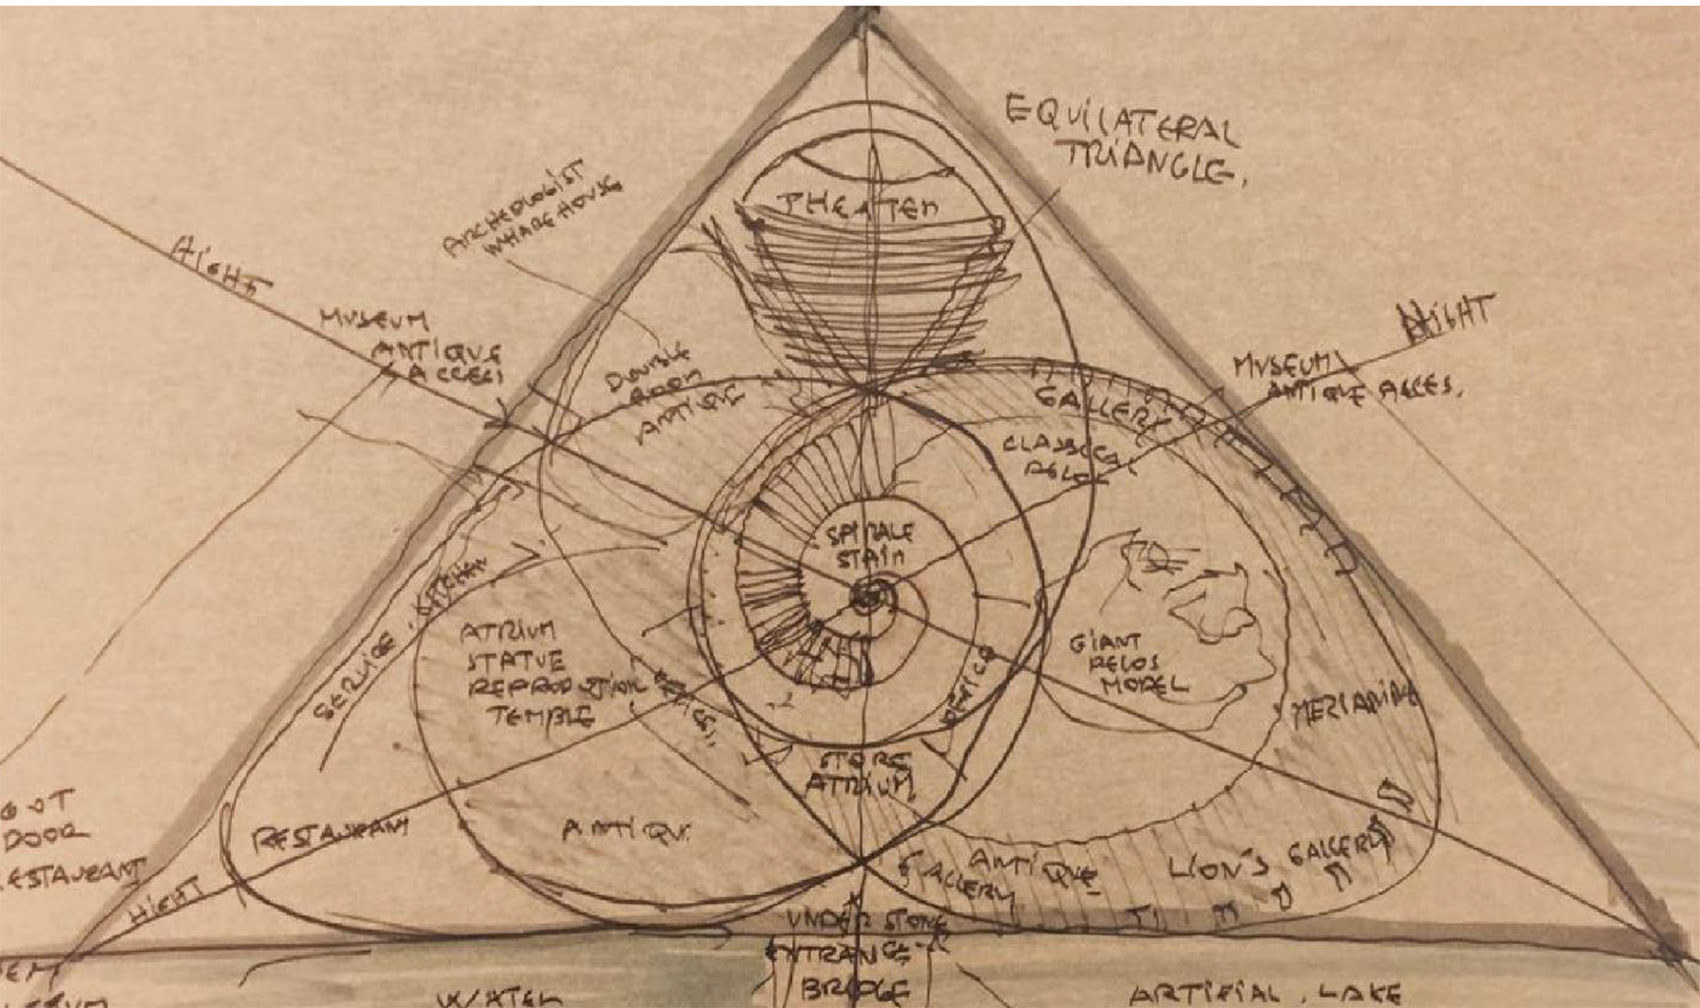 EQUILATERAL
TRIANGLE.
ARCHEOLOGIST
WHAREHOUSE
THEATER
HIGHT
MUSEUM
ANTIQUE
ACCES
HIGHT
MUSEUM
ANTIQUE ACCES.
DOUBLE
ROOM
ANTIQUE
GALLERY
CLASSICAL
DELOS
SPIRALE
STAIR
SERVICE. KITCHEN
ATRIUM
STATUE
REPRODUCTION
TEMPLE
GIANT
DELOS
MODEL
STORE
ATRIUM
OUT
DOOR
RESTAURANT
RESTAURANT
ANTIQU.
ANTIQUE
GALLERY
LION'S GALLERY
HIGHT
UNDER STONE
ENTRANCE
BRIDGE
WATER
ARTIFIAL. LAKE